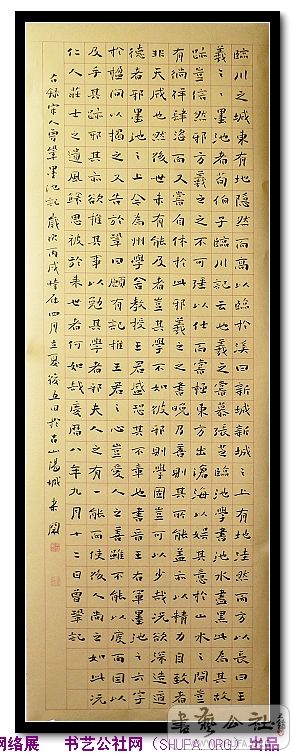 臨川之城東有地隱然而高以臨於溪曰新城新城之上有地洼然而方以長曰王
羲之之墨池者荀伯子臨川記云也羲之嘗慕張芝臨池學書池水盡黑此為其故
跡豈信然邪方羲之之不可強以仕而嘗極東方出滄海以娛其意於山水之間豈
有徜徉肆恣而又嘗自休於此邪羲之之書晚乃善則其所能蓋亦以精力自致者
非天成也然後世未有能及者豈其學不如彼邪則學固豈可以少哉況欲深造道
德者邪墨池之上今為州學舍教授王君盛恐其不章也書晉王右軍墨池之六字
於楹間以揭之又告於鞏曰願有記推王君之心豈愛人之善雖不能以廢而因以
及乎其跡邪其亦欲推其事以勉其學者邪夫人之有一能而使後人尚之如此況
仁人莊士之遺風餘思被於來世者何如哉慶曆八年九月十二日曾鞏記
右錄宋人曾鞏墨池記 歲次丙戌時在四月立夏後五日於古山陽城
书艺公社
网络展 书艺公社网（SHUFA.ORG）出品